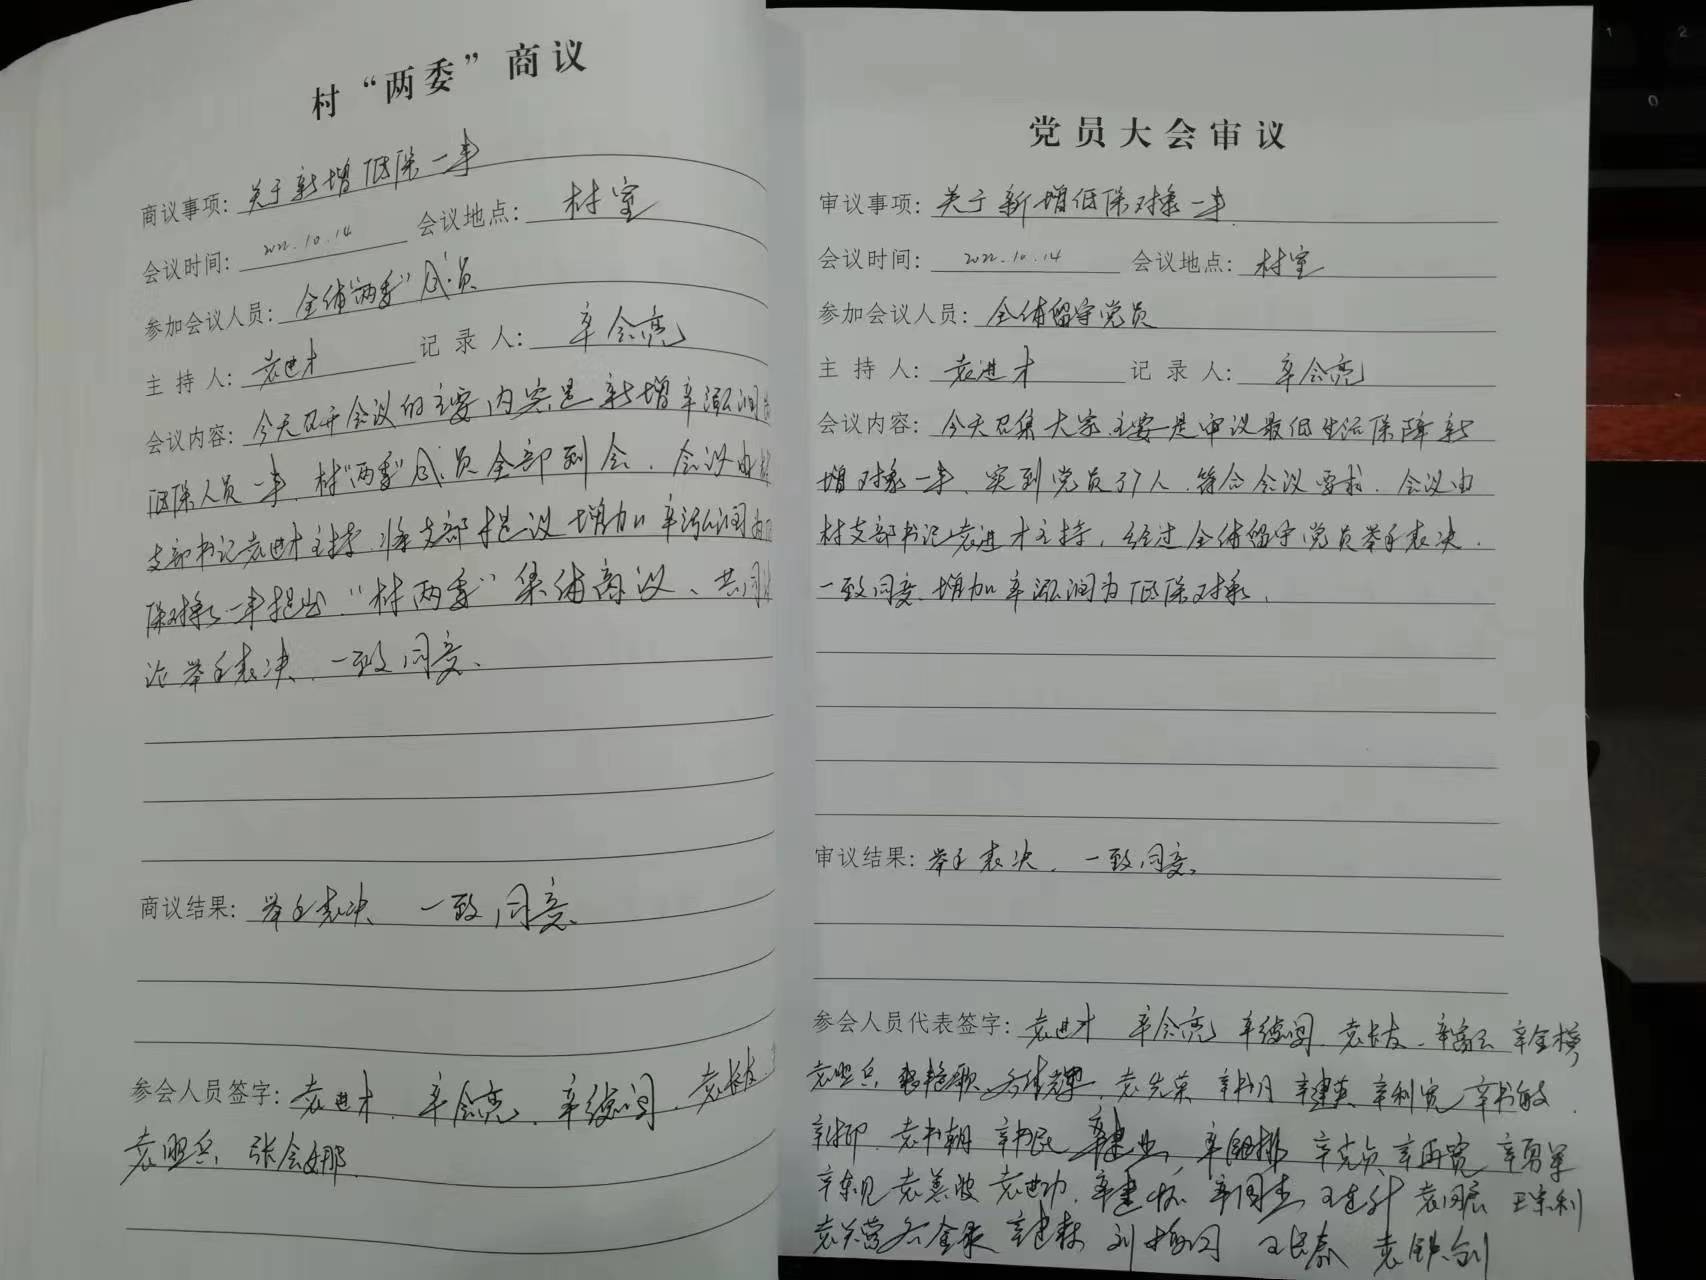 村“两委”商议
商议事项：关于新增低保一事
会议时间：2022.10.14 会议地点：村室
参加会议人员：全体“两委”成员
主持人：袁进才 记录人：辛会亮
会议内容：今天召开会议的主要内容是新增辛泓润
低保人员一事，村“两委”成员全部到会，会议由
支部书记袁进才主持，将支部提议增加辛泓润为
保对象一事提出，“村两委”集体商议、共同
论举手表决，一致同意、
商议结果：举手表决、一致同意、
参会人员签字：袁进才、辛会亮、辛德闯、袁长友
袁照兵 张会娜
党员大会审议
审议事项：关于新增低保对象一事
会议时间：2022.10.14 会议地点：村室
参加会议人员：全体留守党员
主持人：袁进才 记录人：辛会亮
会议内容：今天召集大家主要是审议最低生活保障新
增对象一事、实到党员37人、符合会议要求、会议由
村支部书记袁进才主持，经过全体留守党员举手表决、
一致同意、增加辛泓润为低保对象、
审议结果：举手表决、一致同意、
参会人员代表签字：袁进才 辛会亮 辛德闯、袁长友、辛金榜
袁照兵 袁先荣 辛书月 辛建英 辛利宽 辛书敏
袁书朝 辛书民 辛建业 辛克贞 辛再宽 辛勇军
辛东见 袁善波 袁进功、辛建怀 辛同杰 王连升 王宗利
辛建林 刘梅闯